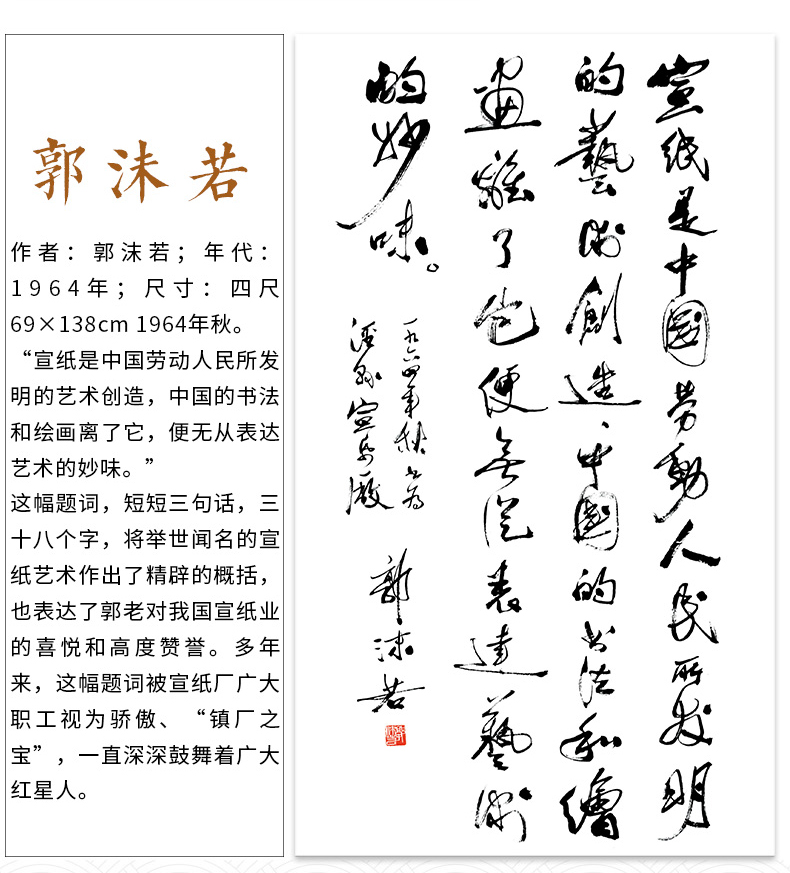 郭沫若
作者：郭沫若；年代：
1964年；尺寸：四尺
69×138cm 1964年秋。
“宣纸是中国劳动人民所发
明的艺术创造，中国的书法
和绘画离了它，便无从表达
艺术的妙味。”
这幅题词，短短三句话，三
十八个字，将举世闻名的宣
纸艺术作出了精辟的概括，
也表达了郭老对我国宣纸业
的喜悦和高度赞誉。多年
来，这幅题词被宣纸厂广大
职工视为骄傲、“镇厂之
宝”，一直深深鼓舞着广大
红星人。
宣紙是中國劳動人民所发明
的藝術創造、中國的书法和繪
畫離了它便無從表達藝術
的妙味。
一九六四年秋书為
涇縣宣紙厰
郭沫若